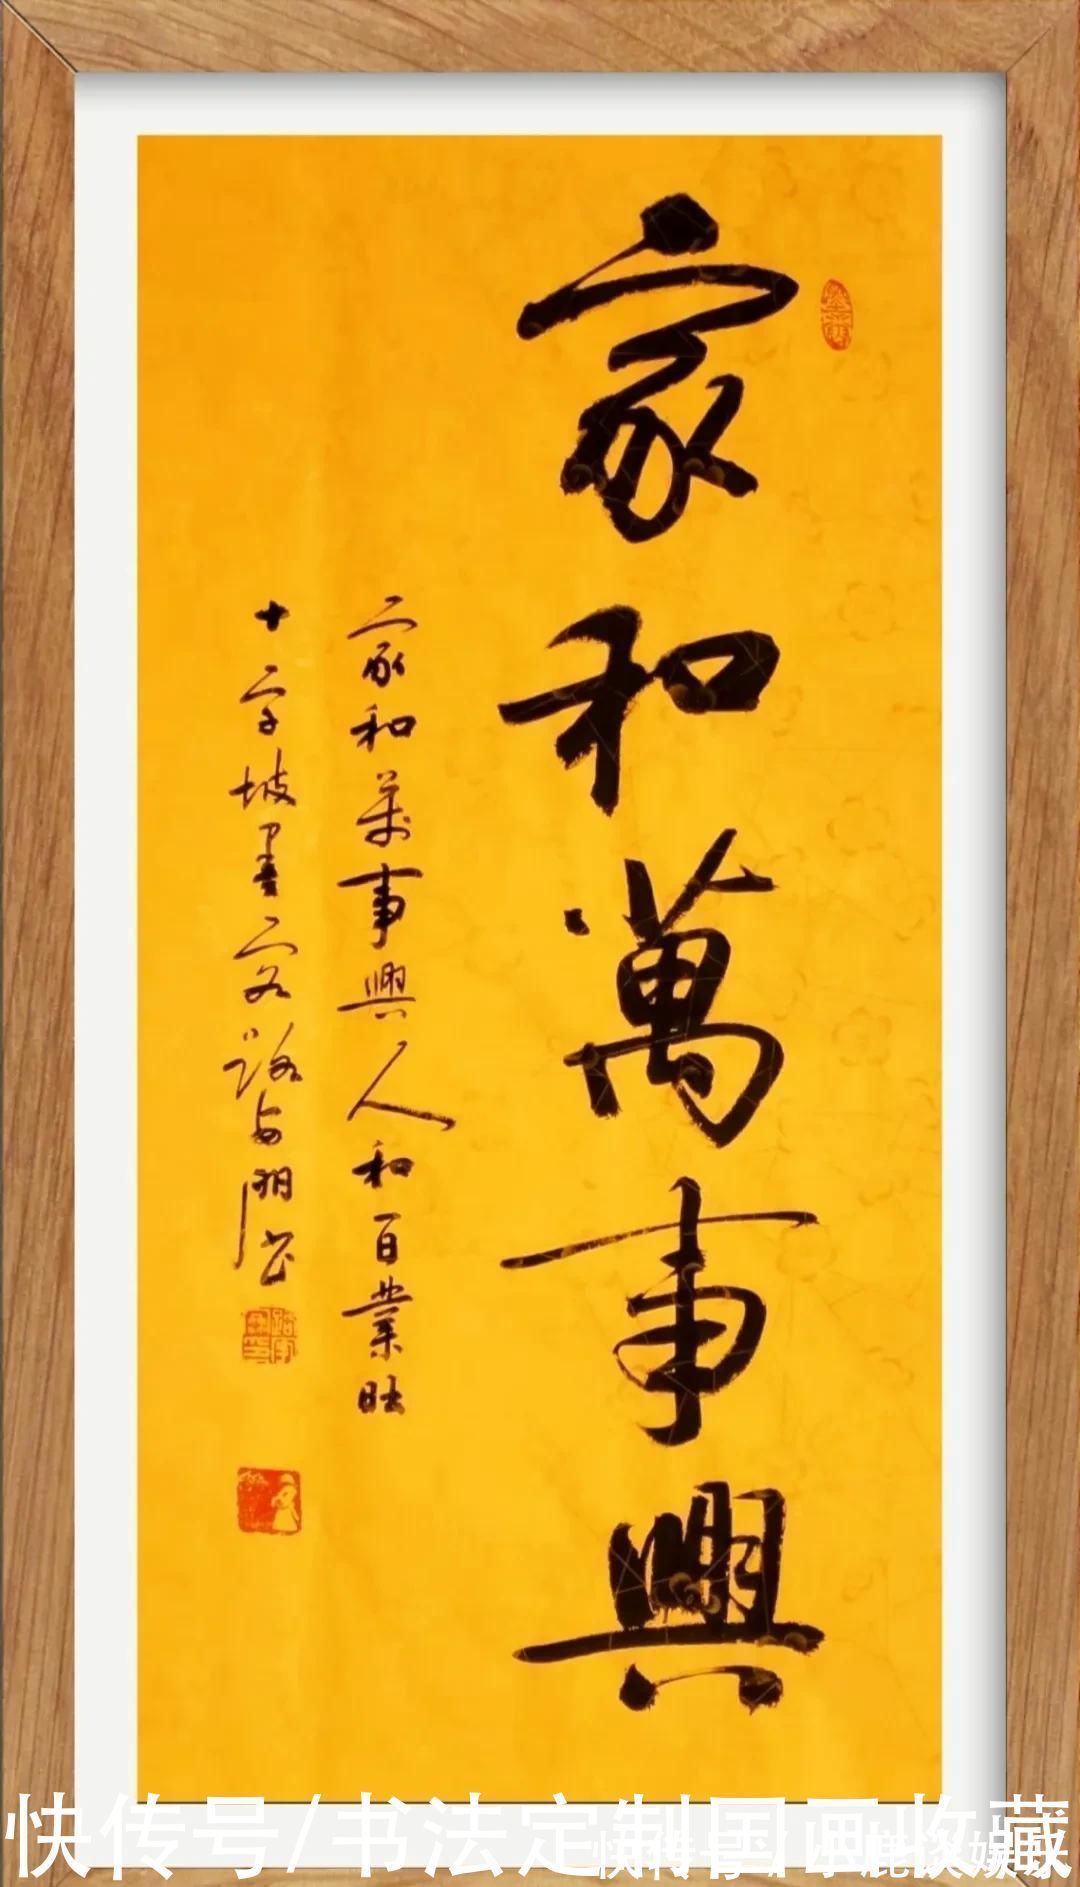 家和萬事興
家和萬事興人和百業旺
十字坡墨客路
快传号/书法定制国画收藏